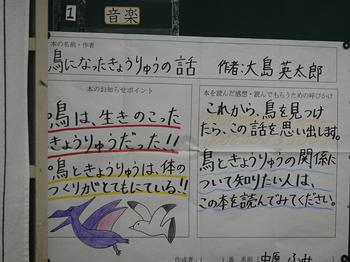 1 音楽
本の名前・作者
鳥になったきょうりゅうの話 作者:大島 英太郎
本のお知らせポイント
鳥は、生きのこった
きょうりゅうだった!!
鳥ときょうりゅうは、体の
つくりがとてもにている!!
本を読んだ感想・読んでもらうための呼びかけ
これから、鳥を見つけ
たら、この話を思い出します。
鳥ときょうりゅうの関係に
ついて知りたい人は、
この本を読んでみてください。
作成者 ( ) 番 名前( 中原